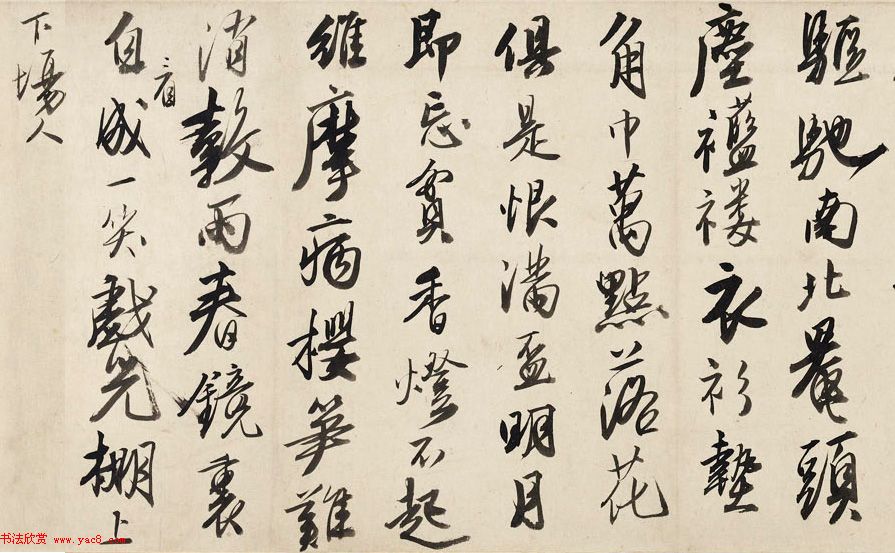 驅馳南北罨頭
塵襤褸衣衫墊
角巾萬點落花
俱是恨滿盃明月
即忘貧香燈不起
維摩病櫻筍難
消穀雨春鏡裏
自看成一笑戲兒棚上
下場人
书法欣赏 www.yac8.com